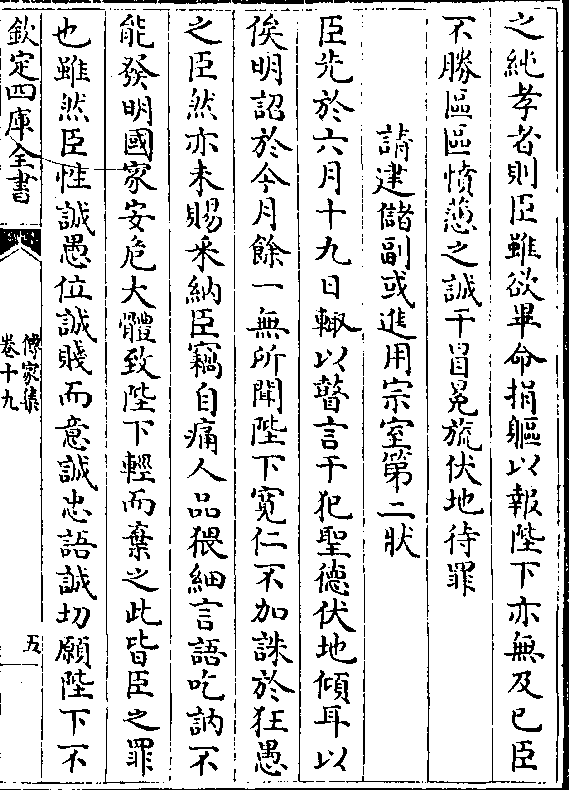 之純孝者則臣雖欲畢命捐軀以報陛下亦無及已臣
不勝區區憤懣之誠干冒冕旒伏地待罪
請建儲副或進用宗室第二狀
臣先於六月十九日輙以瞽言干犯聖德伏地傾耳以
俟明詔於今月餘一無所聞陛下寛仁不加誅於狂愚
之臣然亦未賜采納臣竊自痛人品猥細言語吃訥不
能發明國家安危大體致陛下輕而棄之此皆臣之罪
也雖然臣性誠愚位誠賤而意誠忠語誠切願陛下不
欽定四庫全書
傳家集
卷十九
五